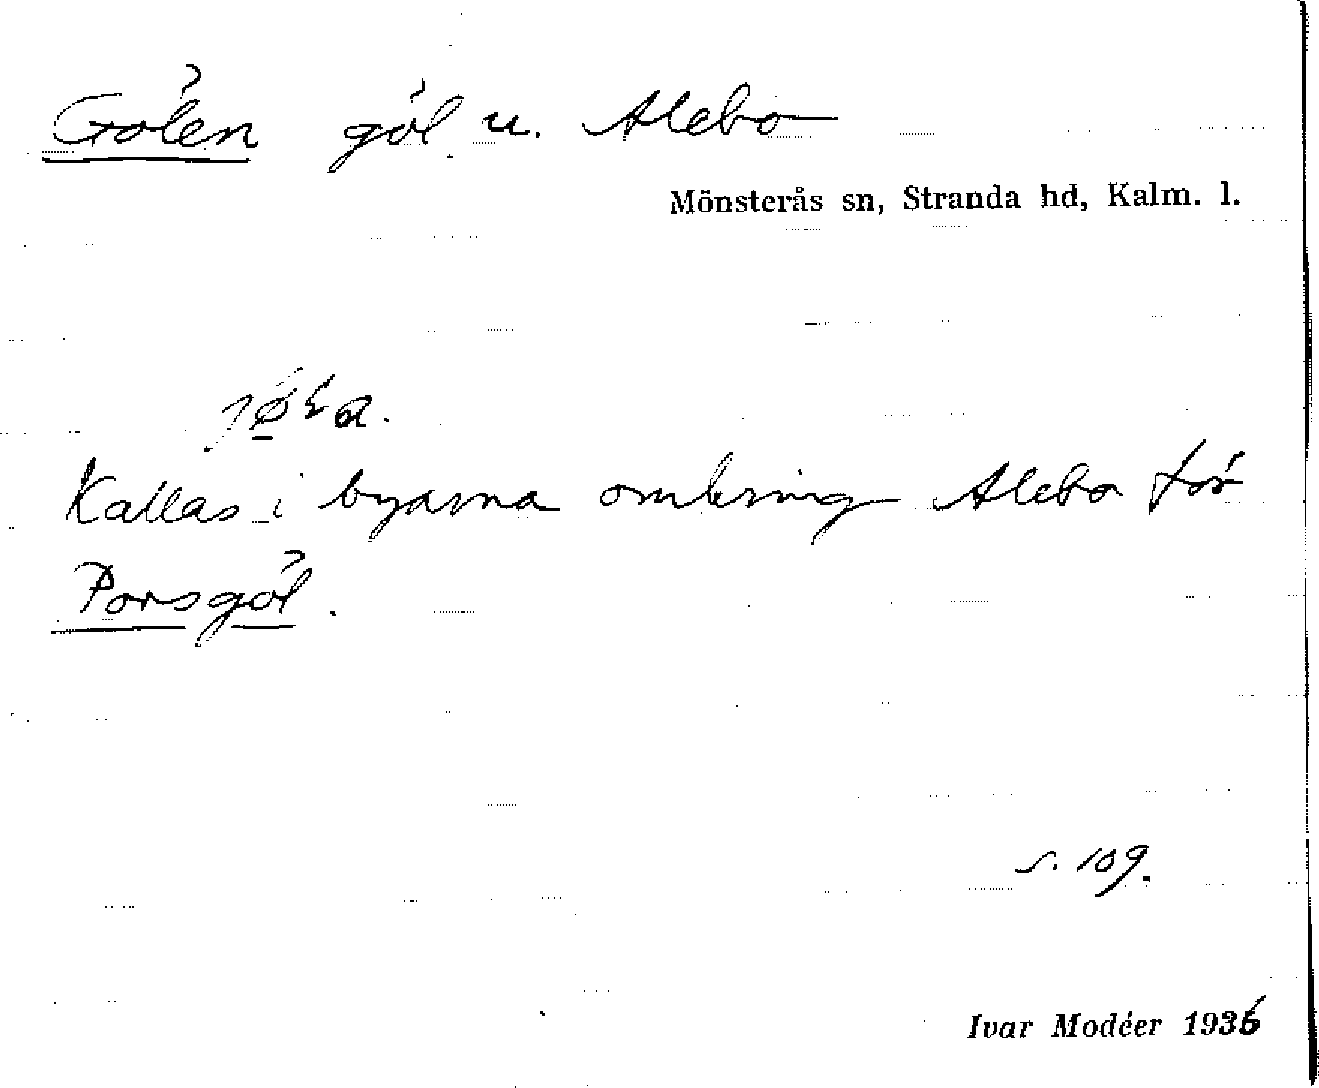 Gölen göl u. Alebo
Mönsterås sn, Stranda hd, Kalm. l.
Kallas i byarna omkring Alebo för
Porsgöl.
s. 109.
Ivar Modéer 1936